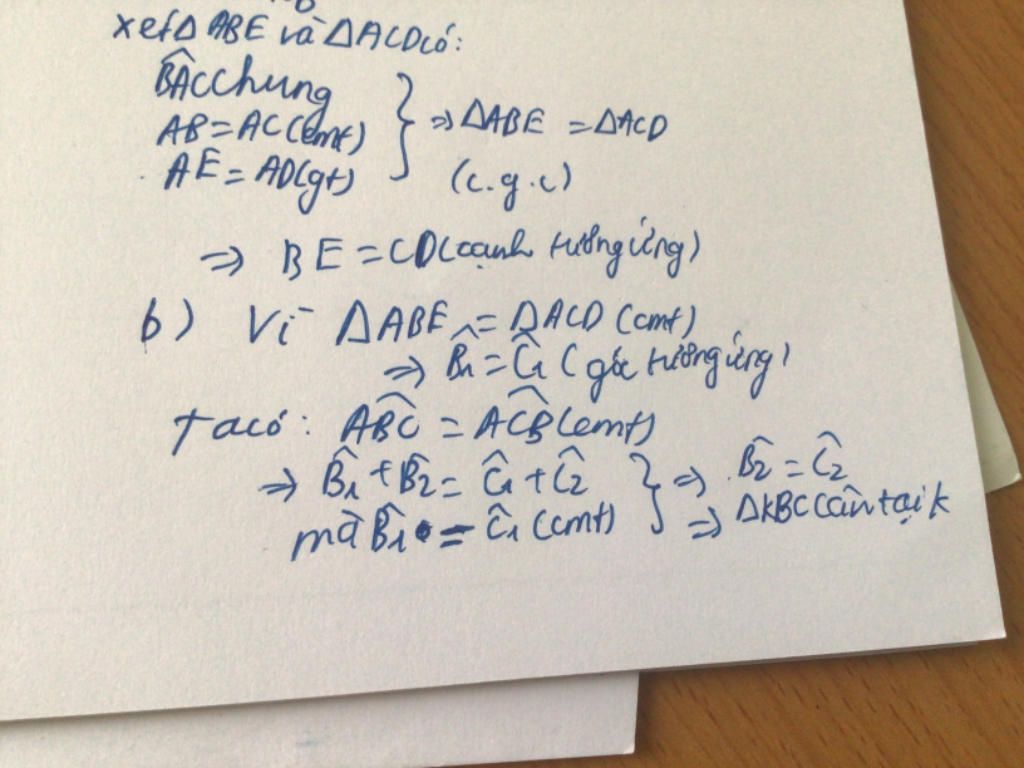 xét ΔABE và ΔACD có:
B̂AC chung
AB = AC (cmt)
AE = AD (gt)
⇒ ΔABE = ΔACD
(c.g.c)
⇒ BE = CD (cạnh tương ứng)
b) Vì ΔABE = ΔACD (cmt)
⇒ B̂1 = Ĉ1 (góc tương ứng)
Ta có: AB̂C = AĈB (cmt)
⇒ B̂1 + B̂2 = Ĉ1 + Ĉ2
mà B̂1 = Ĉ1 (cmt)
⇒ B̂2 = Ĉ2
⇒ ΔKBC cân tại K